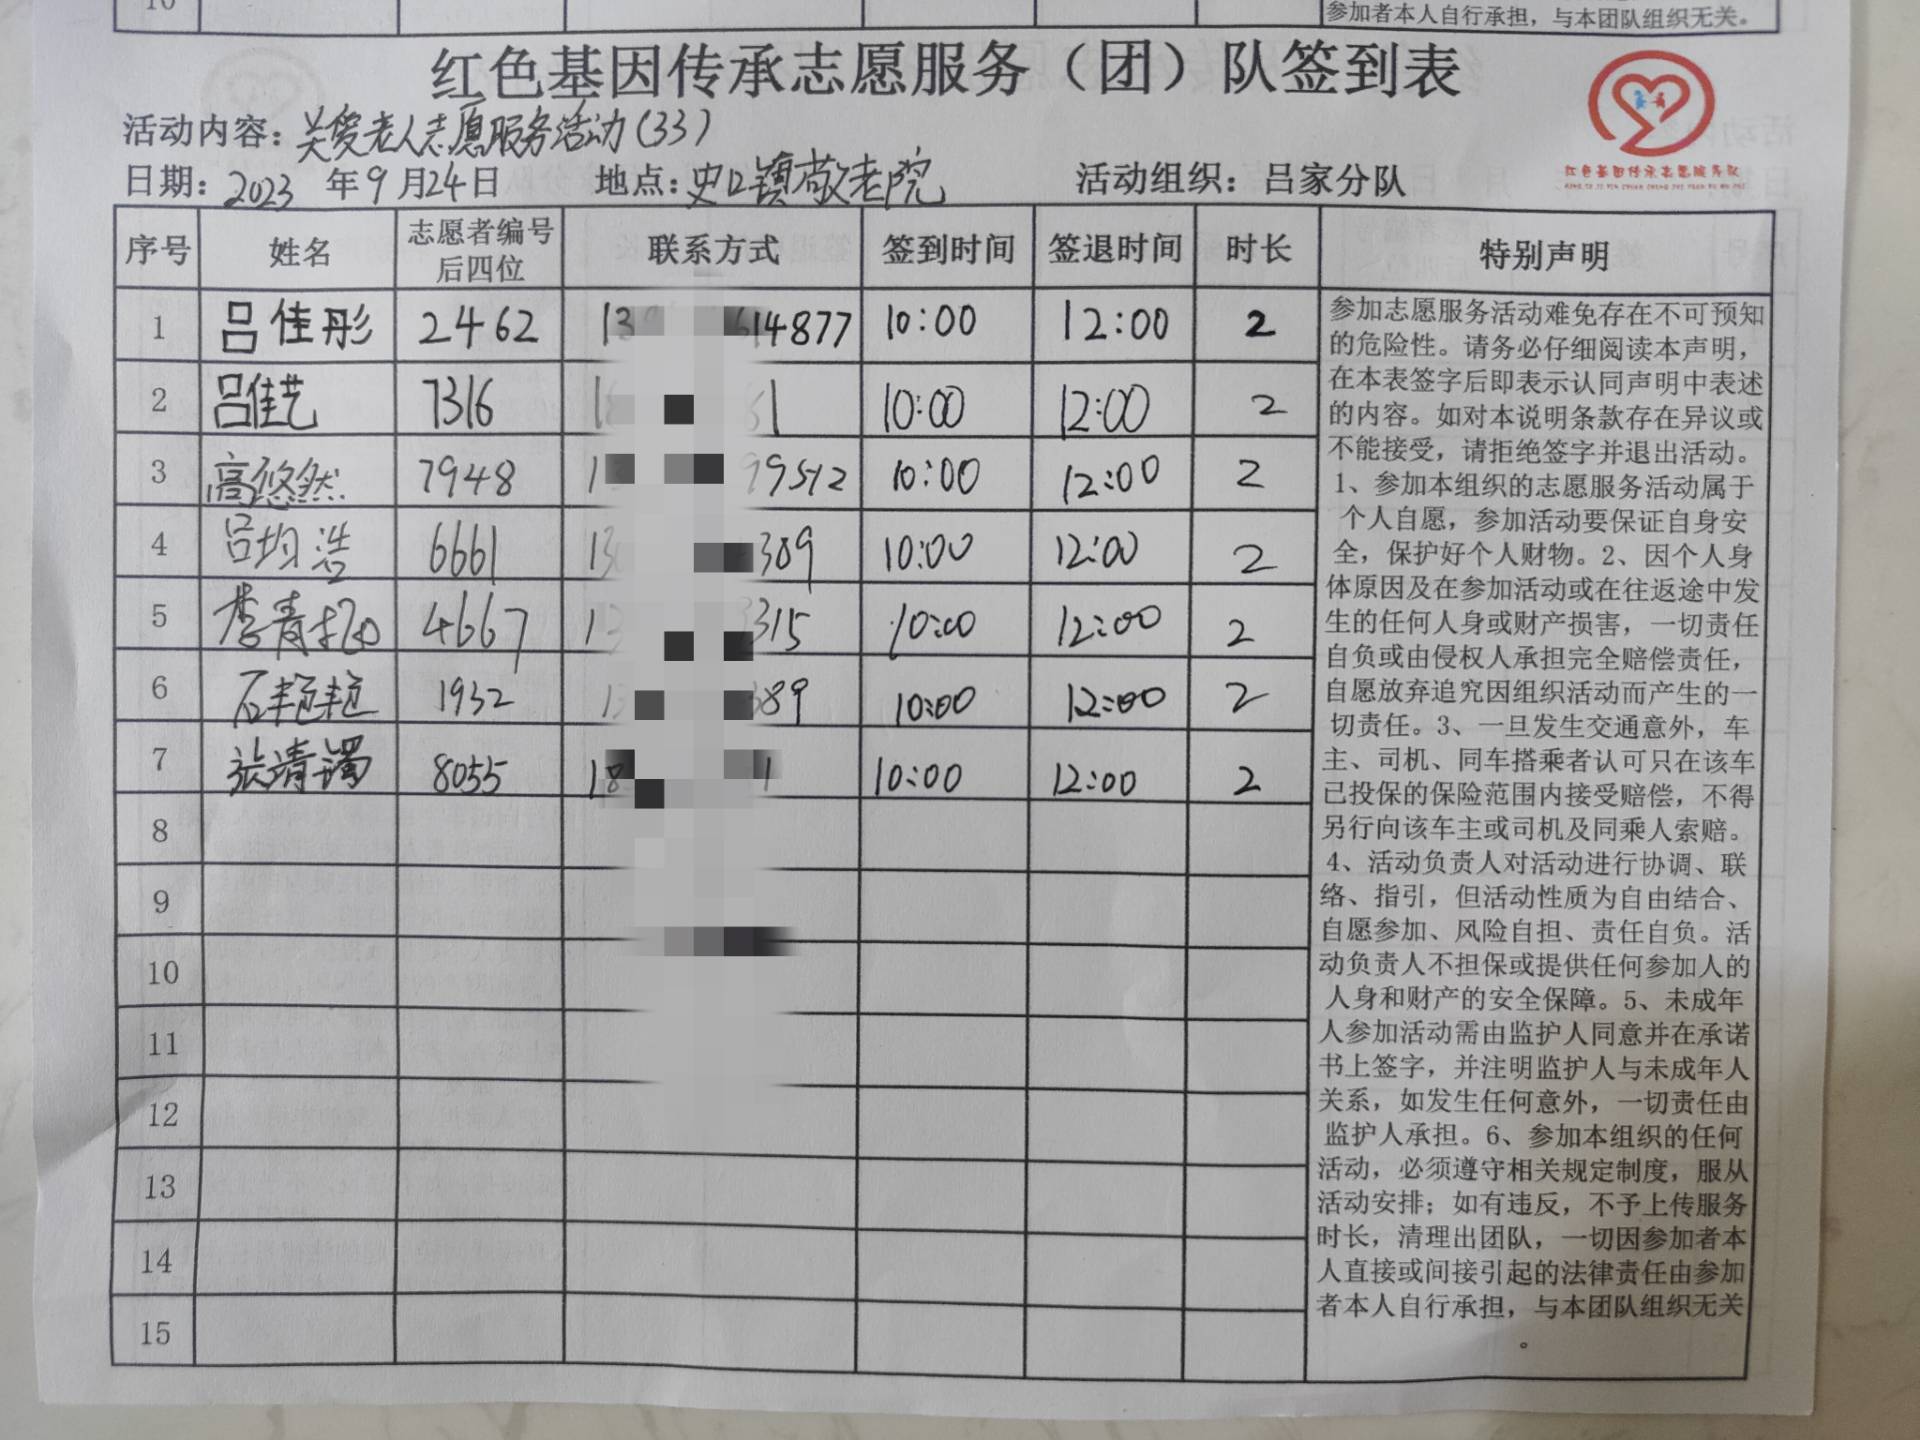 10
参加者本人自行承担，与本团队组织无关。
红色基因传承志愿服务（团）队签到表
活动内容：关爱老人志愿服务活动(33)
日期：2023 年9月24日 地点：史口镇敬老院 活动组织：吕家分队
红色基因传承志愿服务队
序号 姓名 志愿者编号后四位 联系方式 签到时间 签退时间 时长 特别声明
1 吕佳彤 2462 13 614877 10:00 12:00 2
2 吕佳艺 7316 1 1 10:00 12:00 2
3 高悠然 7948 1 99512 10:00 12:00 2
4 吕均浩 6661 13 389 10:00 12:00 2
5 李青 4667 1 315 10:00 12:00 2
6 石艳艳 1932 13 389 10:00 12:00 2
7 张清镯 8055 18 1 10:00 12:00 2
8
9
10
11
12
13
14
15
参加志愿服务活动难免存在不可预知
的危险性。请务必仔细阅读本声明，
在本表签字后即表示认同声明中表述
的内容。如对本说明条款存在异议或
不能接受，请拒绝签字并退出活动。
1、参加本组织的志愿服务活动属于
个人自愿，参加活动要保证自身安
全，保护好个人财物。2、因个人身
体原因及在参加活动或在往返途中发
生的任何人身或财产损害，一切责任
自负或由侵权人承担完全赔偿责任，
自愿放弃追究因组织活动而产生的一
切责任。3、一旦发生交通意外，车
主、司机、同车搭乘者认可只在该车
已投保的保险范围内接受赔偿，不得
另行向该车主或司机及同乘人索赔。
4、活动负责人对活动进行协调、联
络、指引，但活动性质为自由结合、
自愿参加、风险自担、责任自负。活
动负责人不担保或提供任何参加人的
人身和财产的安全保障。5、未成年
人参加活动需由监护人同意并在承诺
书上签字，并注明监护人与未成年人
关系，如发生任何意外，一切责任由
监护人承担。6、参加本组织的任何
活动，必须遵守相关规定制度，服从
活动安排；如有违反，不予上传服务
时长，清理出团队，一切因参加者本
人直接或间接引起的法律责任由参加
者本人自行承担，与本团队组织无关
。